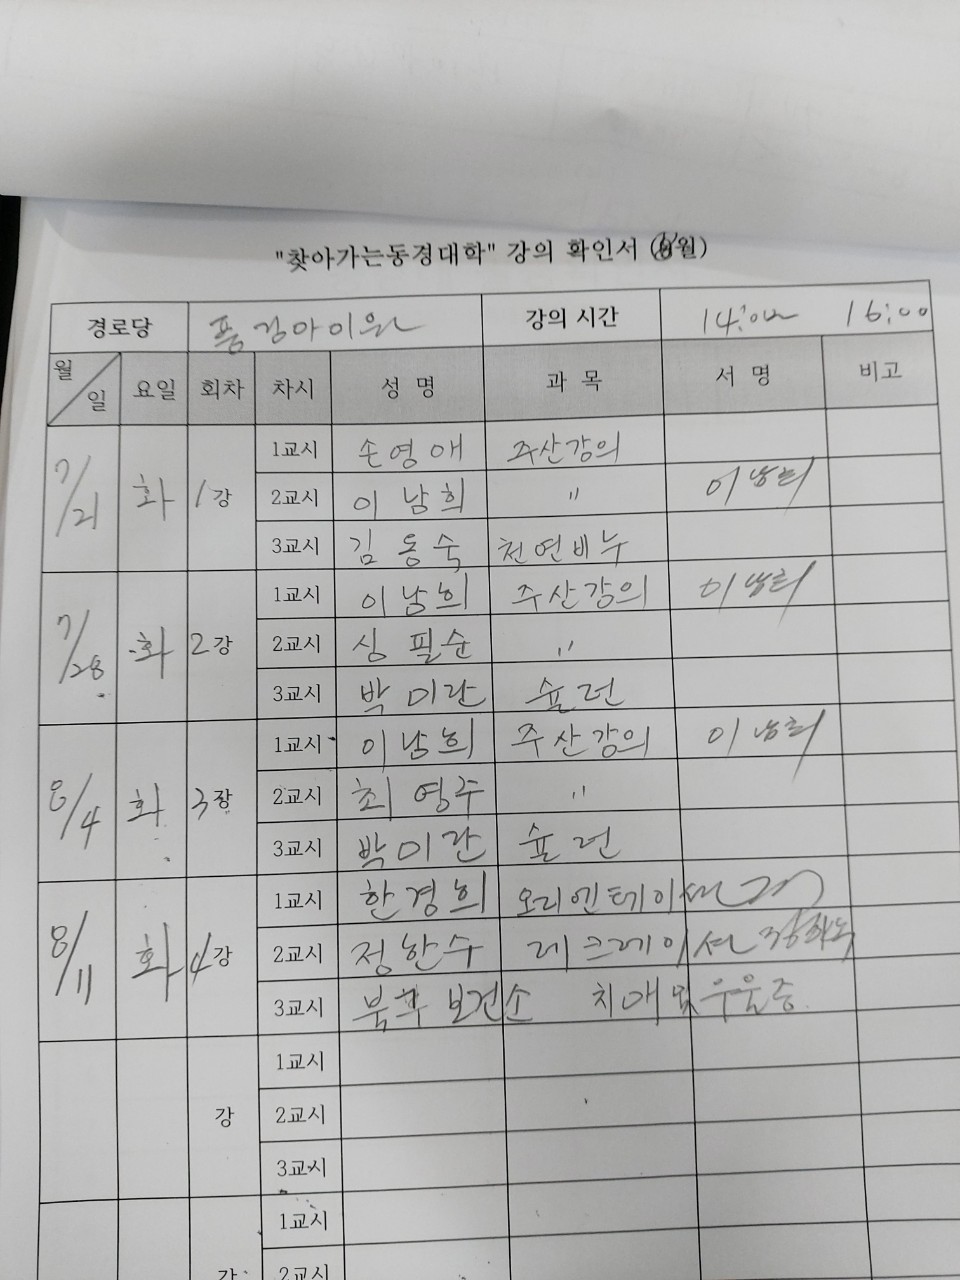 "찾아가는동경대학" 강의 확인서 ( 월)
경로당 풍경아이원 강의 시간 14:00 16:00
월/일 요일 회차 차시 성명 과목 서명 비고
7/21 화 1강 1교시 손영애 주산강의
2교시 이남희 〃 이남희
3교시 김동숙 천연비누
7/28 화 2강 1교시 이남희 주산강의 이남희
2교시 심필순 〃
3교시 박미란 슐런
8/4 화 3강 1교시 이남희 주산강의 이남희
2교시 최영주 〃
3교시 박미란 슐런
8/11 화 4강 1교시 한경희 오리엔테이션
2교시 정한수 레크레이션 정한수
3교시 북부보건소 치매및우울증
강 1교시
2교시
3교시
강 1교시
2교시